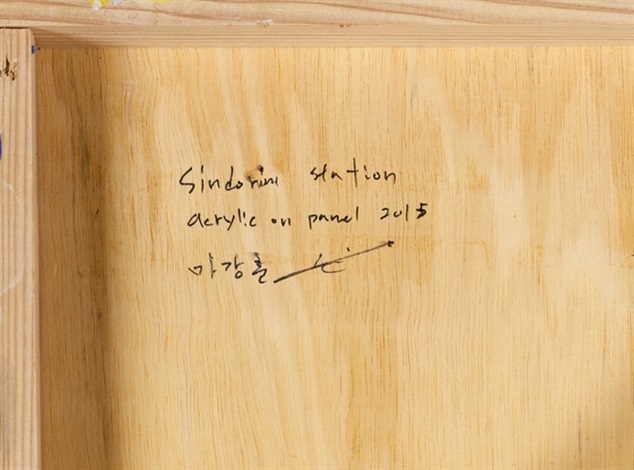 Sindorim station
acrylic on panel 2015
마강훈